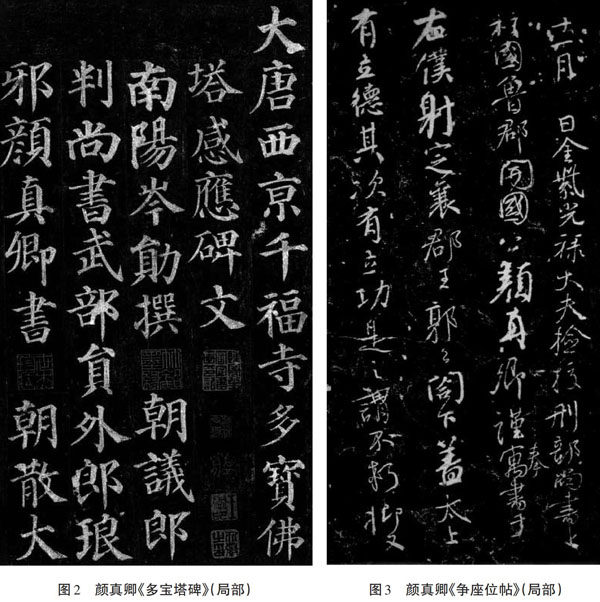 大唐西京千福寺多寶佛
塔感應碑文
南陽岑勛撰 朝議郎
判尚書武部員外郎琅
邪顏真卿書 朝散大
图2 颜真卿《多宝塔碑》(局部)
十一月 日金紫光祿大夫檢校刑部尚書上
柱國魯郡開國公顏真卿謹奉寓書于
右僕射定襄郡王郭公閣下蓋太上
有立德其次有立功是之謂不朽抑又
图3 颜真卿《争座位帖》(局部)